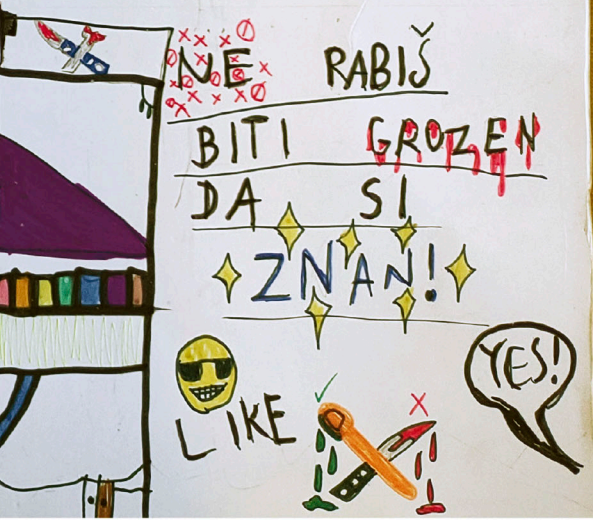 NE RABIŠ
BITI GROZEN
DA SI
ZNAN!
YES!
LIKE